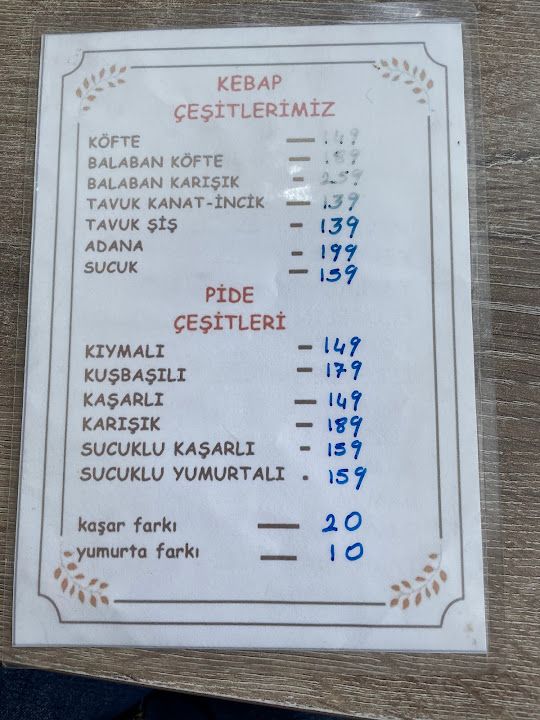 KEBAP
ÇEŞİTLERİMİZ
KÖFTE — 149
BALABAN KÖFTE — 189
BALABAN KARIŞIK - 259
TAVUK KANAT-İNCİK — 139
TAVUK ŞİŞ - 139
ADANA - 199
SUCUK — 159
PİDE
ÇEŞİTLERİ
KIYMALI - 149
KUŞBAŞILI - 179
KAŞARLI — 149
KARIŞIK - 189
SUCUKLU KAŞARLI - 159
SUCUKLU YUMURTALI . 159
kaşar farkı — 20
yumurta farkı — 10